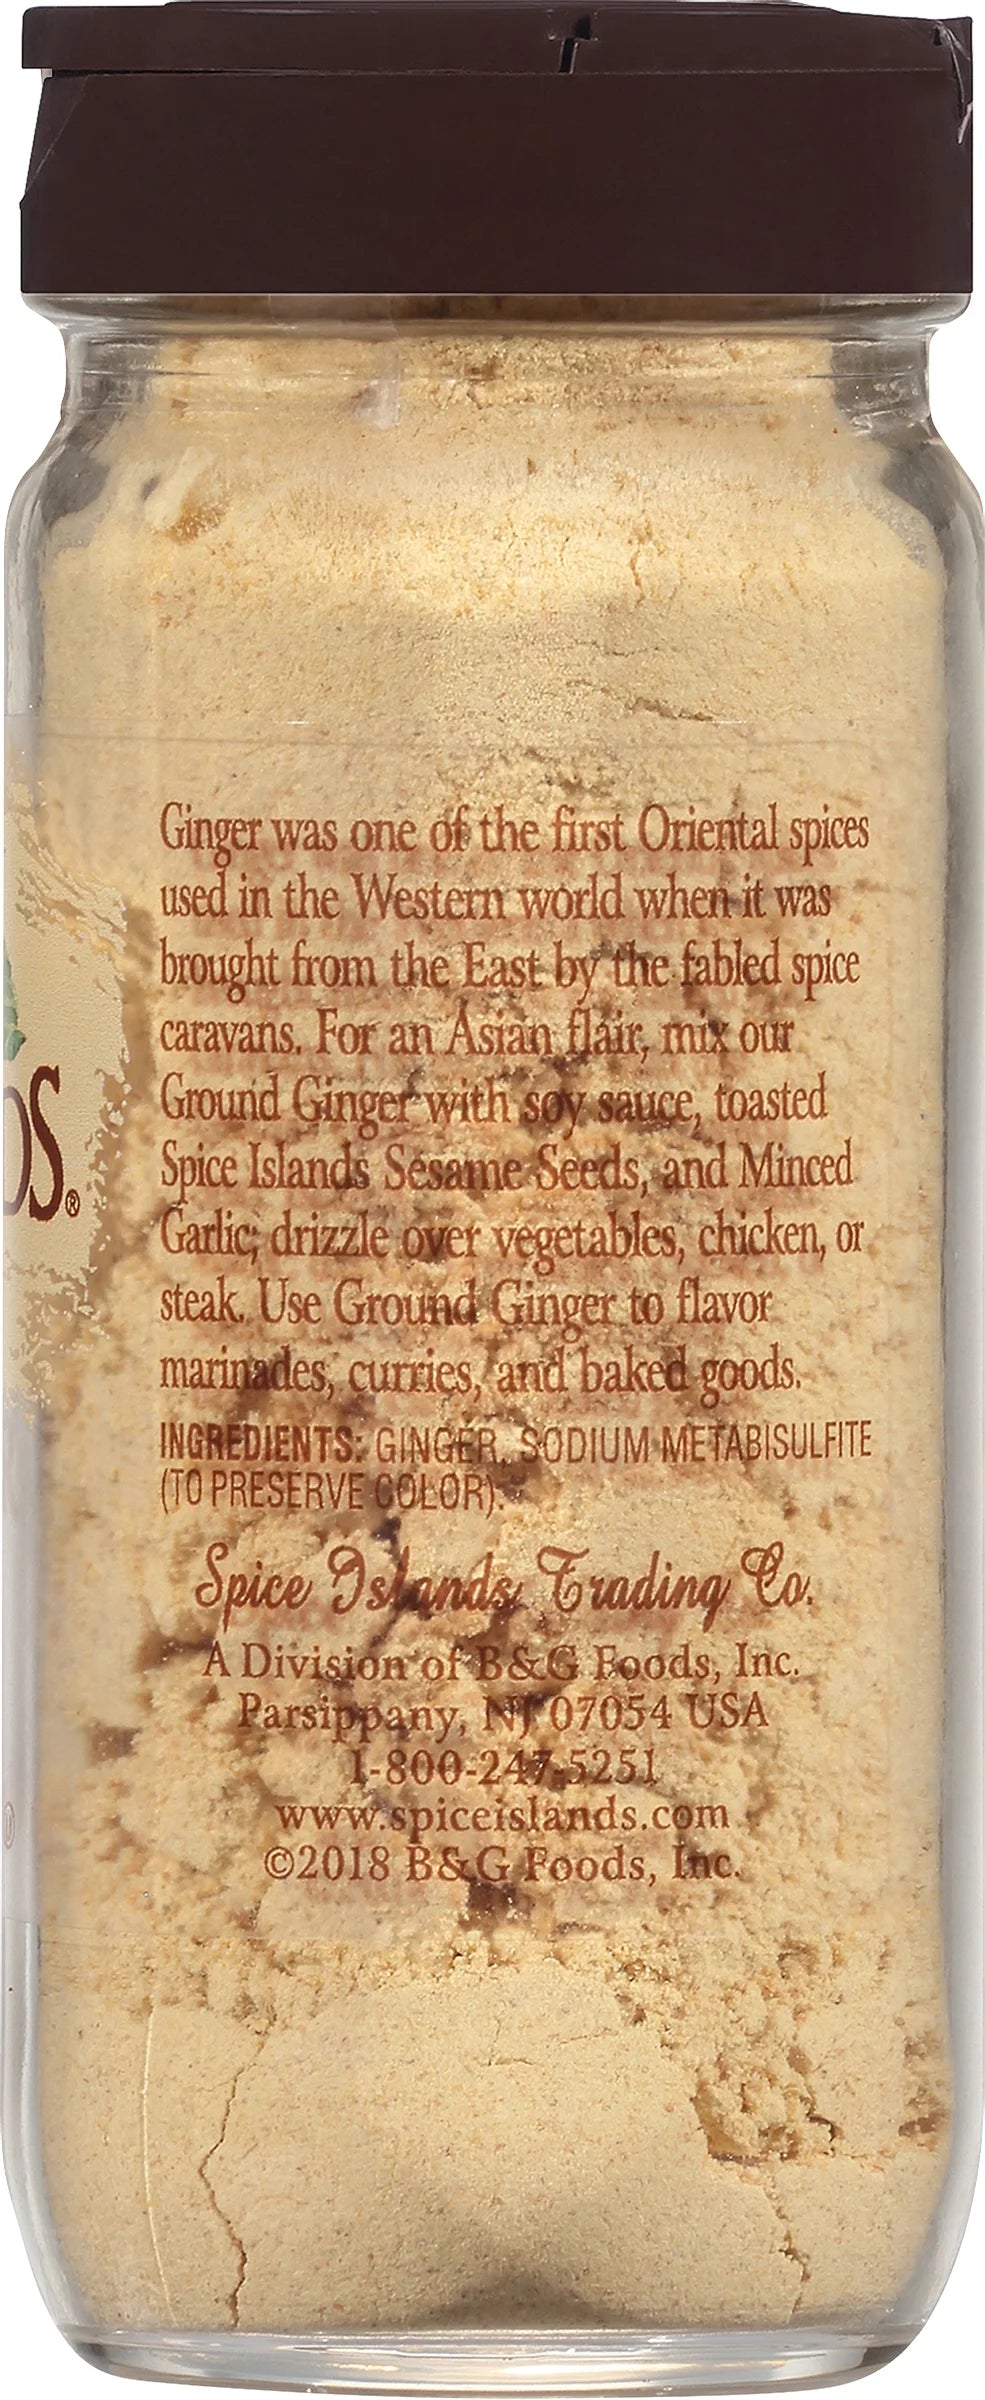 Ginger was one of the first Oriental spices
used in the Western world when it was
brought from the East by the fabled spice
caravans. For an Asian flair, mix our
Ground Ginger with soy sauce, toasted
Spice Islands Sesame Seeds, and Minced
Garlic; drizzle over vegetables, chicken, or
steak. Use Ground Ginger to flavor
marinades, curries, and baked goods.
INGREDIENTS: GINGER, SODIUM METABISULFITE
(TO PRESERVE COLOR).
Spice Islands Trading Co.
A Division of B&G Foods, Inc.
Parsippany, NJ 07054 USA
1-800-247-5251
www.spiceislands.com
©2018 B&G Foods, Inc.